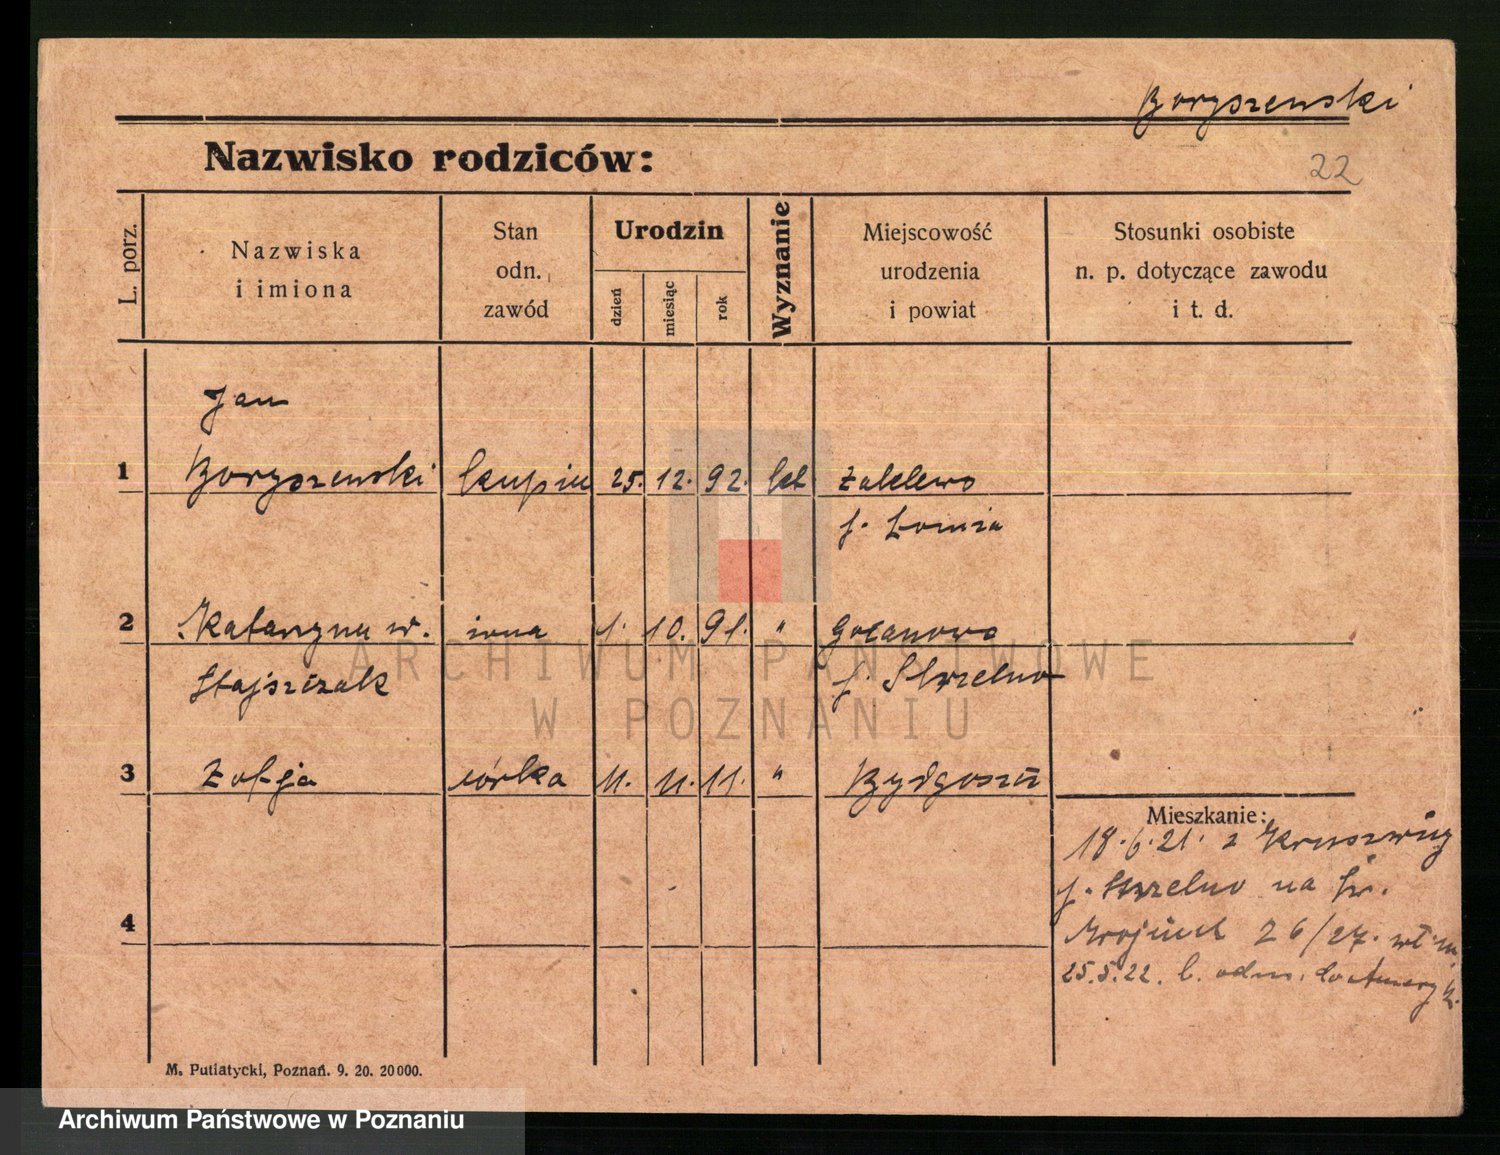 Boryszewski
Nazwisko rodziców:
22
L. porz.
Nazwiska
i imiona
Stan
odn.
zawód
Urodzin
dzień
miesiąc
rok
Wyznanie
Miejscowość
urodzenia
i powiat
Stosunki osobiste
n. p. dotyczące zawodu
i t. d.
Jan
1 Boryszewski kupiec 25. 12. 92. kat Zaklewo
p. Łomża
2 Katarzyna w. żona 1. 10. 91. " Gocanowo
Stajszczak p. Strzelno
3 Zofja córka 11. 11. 11. " Bydgoszcz
Mieszkanie:
18.6.21. z Kruszwicy
p. Strzelno na Św.
Wojciech 26/27.
25.5.22. do Ameryk
4
M. Putiatycki, Poznań. 9. 20. 20000.
ARCHIWUM PAŃSTWOWE
W POZNANIU
Archiwum Państwowe w Poznaniu